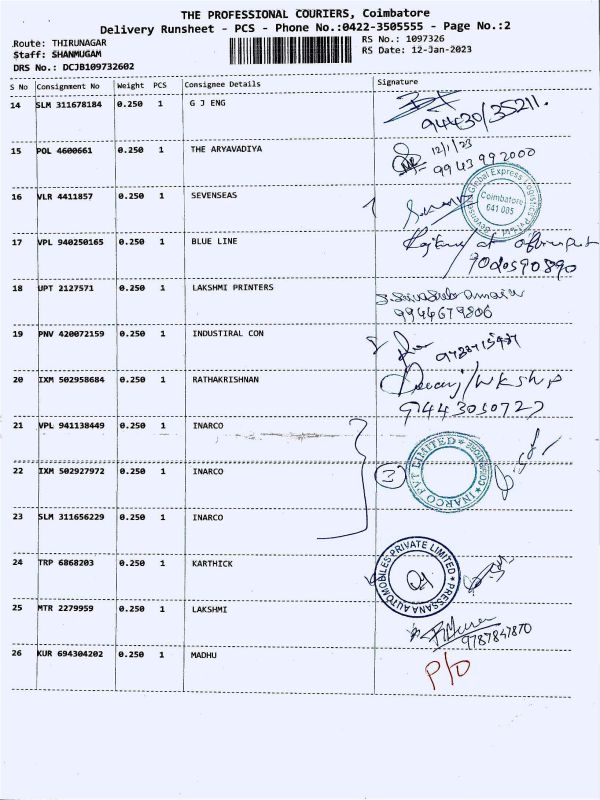 THE PROFESSIONAL COURIERS, Coimbatore
Delivery Runsheet - PCS - Phone No.:0422-3505555 - Page No.:2
Route: THIRUNAGAR
RS No.: 1097326
Staff: SHANMUGAM
RS Date: 12-Jan-2023
DRS No.: DCJB109732602
S No Consignment No Weight PCS Consignee Details Signature
14 SLM 311678184 0.250 1 G J ENG
94430/35211.
15 POL 4600661 0.250 1 THE ARYAVADIYA 12/1/23
9943992000
16 VLR 4411857 0.250 1 SEVENSEAS
Sevenseas Global Express Logistics Pvt Ltd
Coimbatore
641 005
17 VPL 940250165 0.250 1 BLUE LINE
9020590890
18 UPT 2127571 0.250 1 LAKSHMI PRINTERS
9944679806
19 PNV 420072159 0.250 1 INDUSTIRAL CON
20 IXM 502958684 0.250 1 RATHAKRISHNAN
9443050727
21 VPL 941138449 0.250 1 INARCO
22 IXM 502927972 0.250 1 INARCO 3
INARCO PVT LIMITED
23 SLM 311656229 0.250 1 INARCO
24 TRP 6868203 0.250 1 KARTHICK
PRESSANA AUTOMOBILES PRIVATE LIMITED
25 MTR 2279959 0.250 1 LAKSHMI
9787847870
26 KUR 694304202 0.250 1 MADHU
P/D